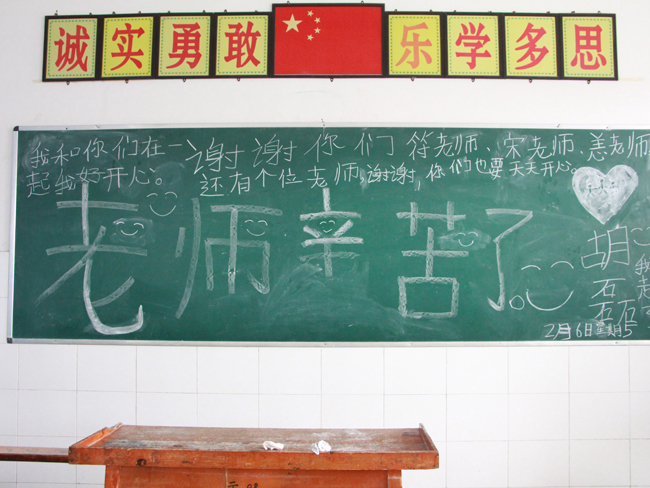 诚实勇敢 乐学多思
我和你们在一
起我好开心。
谢谢你们 符老师、宋老师、姜老师
还有个位老师。谢谢,你们也要天天开心。
老师辛苦了。
胡
石
石石
我
起
2月6日星期5